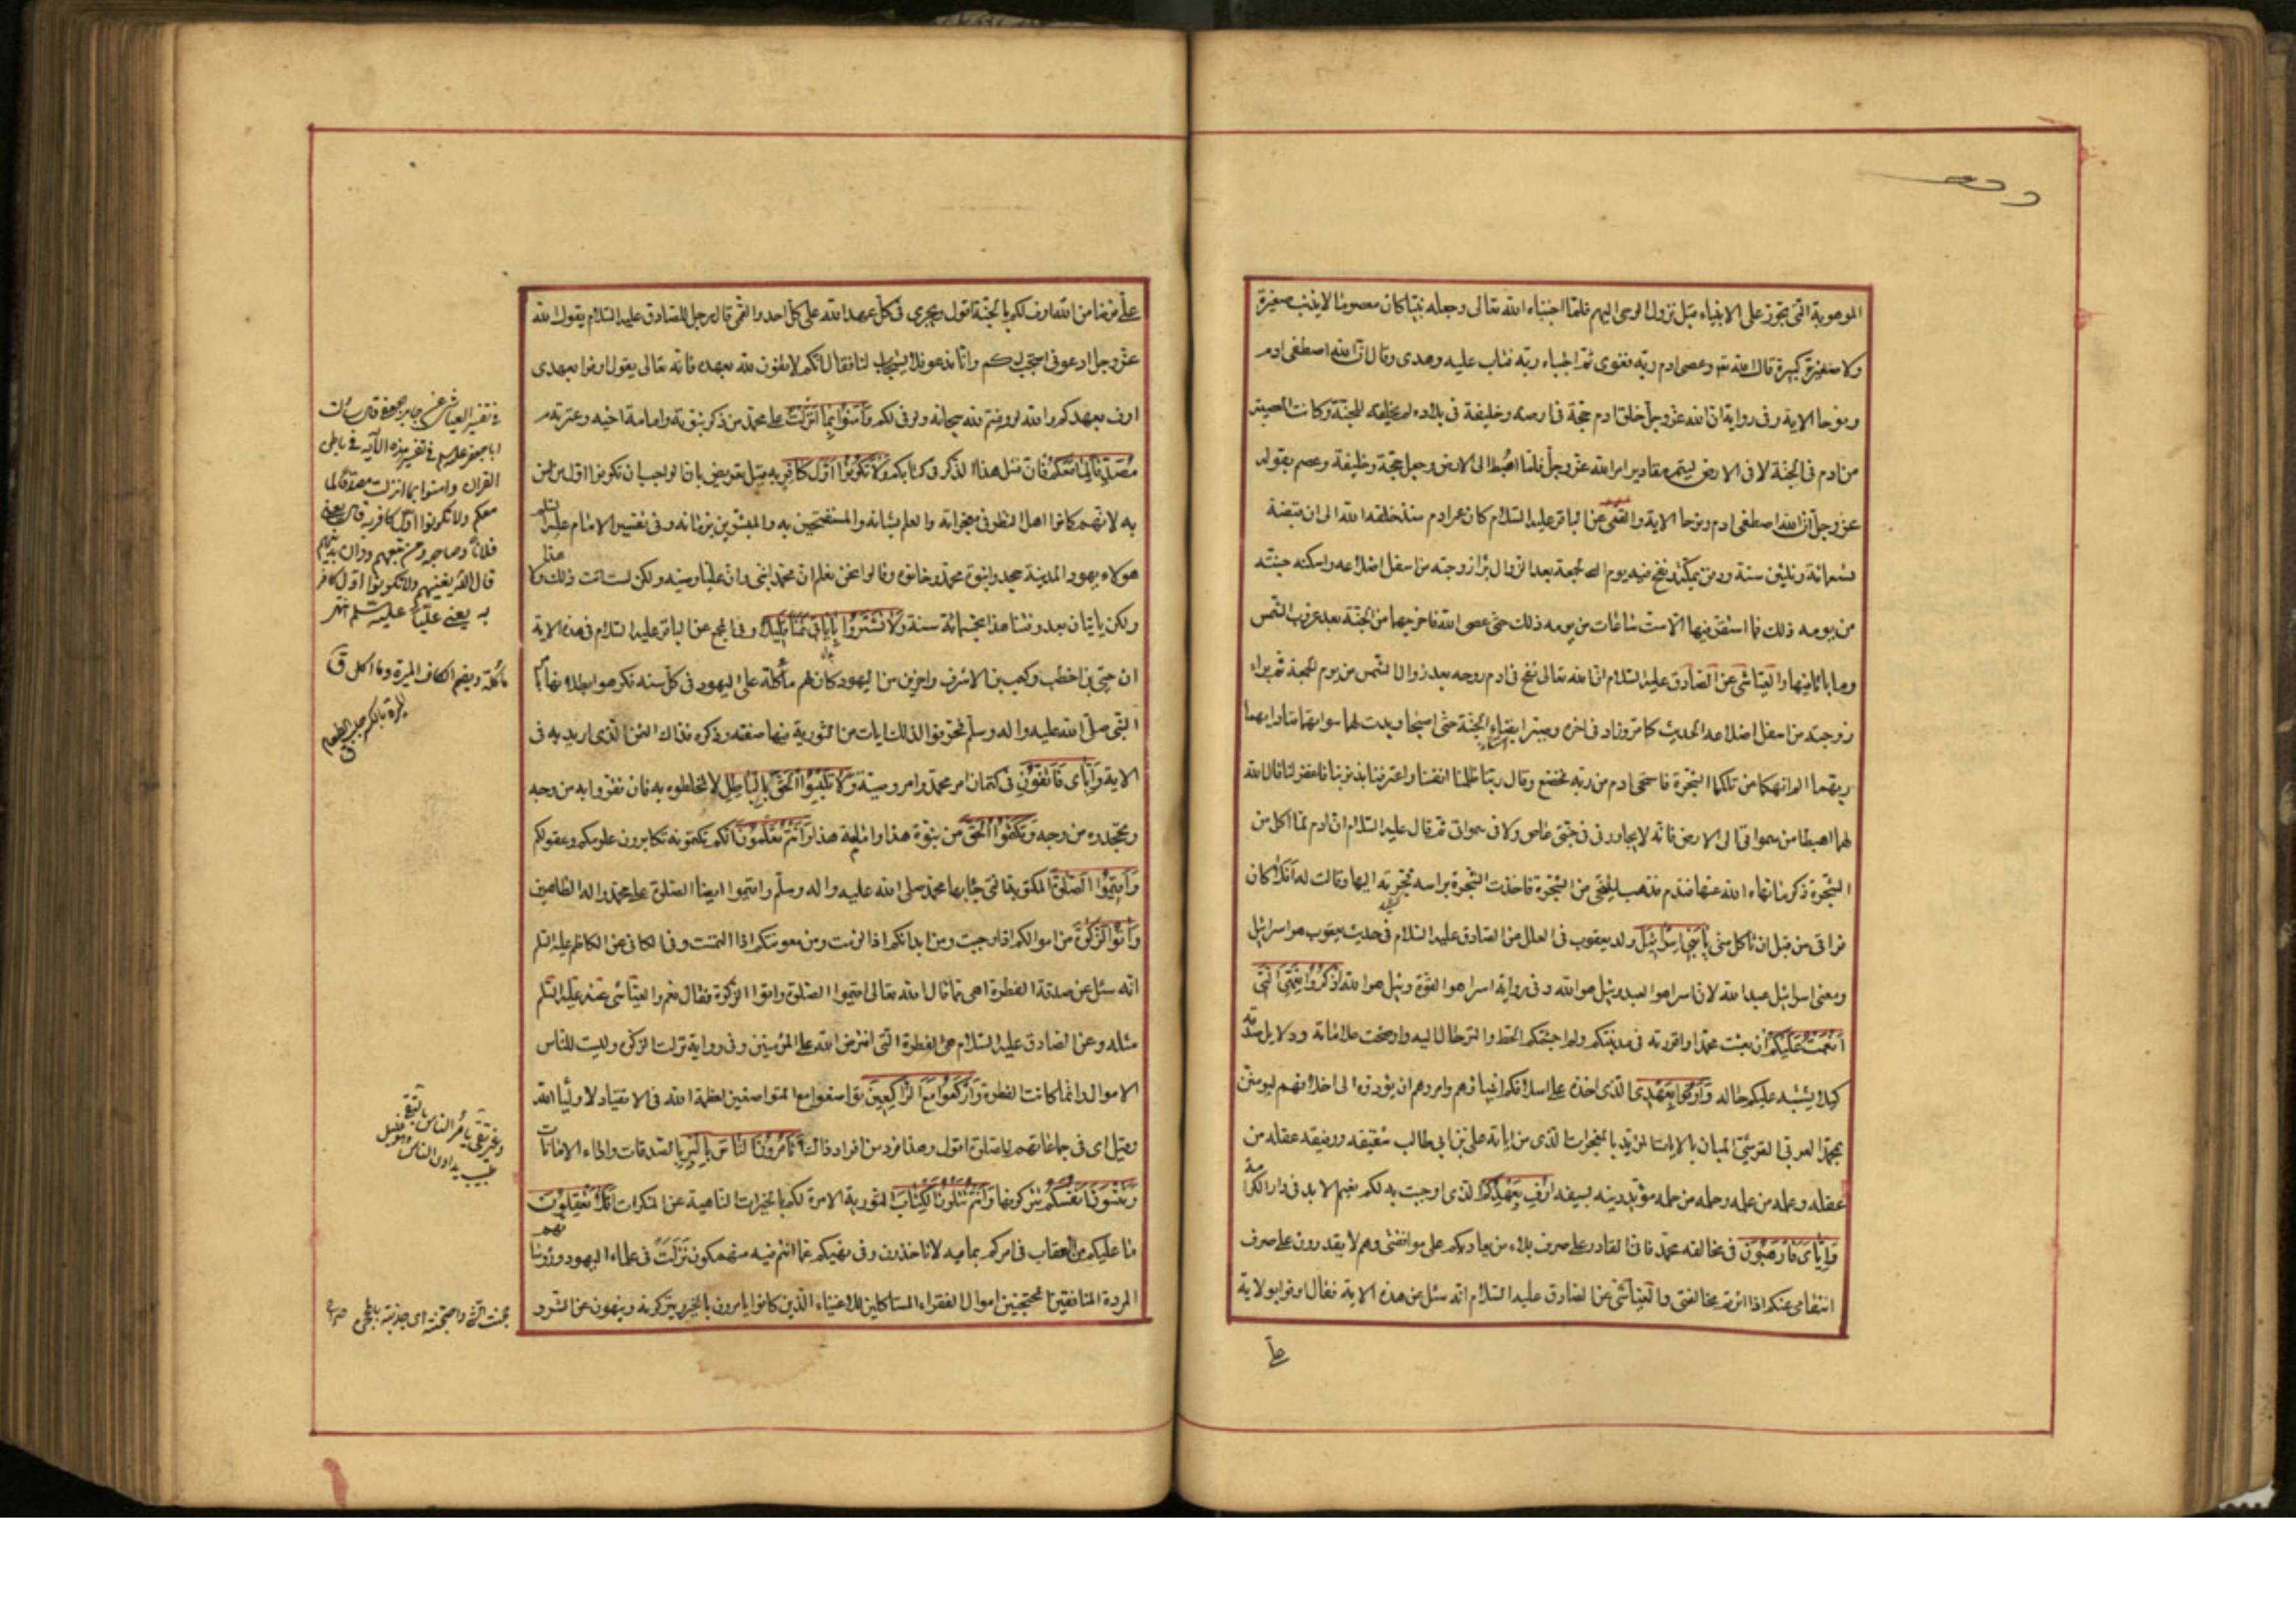 الموهوبة التي تجوز على الانبياء قبل نزول الوحي اليهم فلما اجتباه الله تعالى وجعله نبيا كان معصوما لا يذنب صغيرة
ولا كبيرة قال الله وعصى ادم ربه فغوى ثم اجتباه ربه فتاب عليه وهدى وقال ان الله اصطفى ادم
ونوحا الاية وفي رواية ان الله عز وجل خلق ادم حجة في ارضه وخليفة في بلاده لم يخلقه للجنة وكانت المعصية
من ادم في الجنة لا في الارض ليتم مقادير امر الله عز وجل فلما اهبط الى الارض وجعل حجة وخليفة وعصم بقوله
عز وجل ان الله اصطفى ادم ونوحا الاية والقمي عن الباقر عليه السلام كان عمر ادم منذ خلقه الله الى ان قبضه
تسعمائة وثلثين سنة ودفن بمكة ونفخ فيه يوم الجمعة بعد الزوال ثم برا زوجته من اسفل اضلاعه واسكنه جنته
من يومه ذلك فما استقر فيها الا ست ساعات من يومه ذلك حتى عصى الله فاخرجهما من الجنة بعد غروب الشمس
وما باتا فيها والعياشي عن الصادق عليه السلام ان الله تعالى نفخ في ادم روحه بعد زوال الشمس من يوم الجمعة ثم براء
زوجته من اسفل اضلاعه الحديث كما مر وزاد في اخره وصيرا بفناء الجنة حتى اصبحا وبدت لهما سواتهما فناداهما
ربهما الم انهكما من تلكما الشجرة فاستحى ادم من ربه فخضع وقال ربنا ظلمنا انفسنا واعترفنا بذنوبنا فاغفر لنا قال الله
لهما اهبطا من سمواتي الى الارض فانه لا يجاورني في جنتي عاص ولا في سمواتي ثم قال عليه السلام ان ادم لما اكل من
الشجرة ذكر ما نهاه الله عنها فندم فذهب ليتنحى من الشجرة فاخذت الشجرة براسه فجرته اليها وقالت له افلا كان
فرارى من قبل ان تاكل مني يا بني اسرائيل ولد يعقوب في العلل عن الصادق عليه السلام في حديث يعقوب هو اسرائيل
ومعنى اسرائيل عبد الله لان اسرا هو العبد وئيل هو الله وفي رواية اسرا هو القوة وئيل هو الله اذكروا نعمتي التي
انعمت عليكم ان بعثت محمدا واقررته في مدينتكم ولم اجشمكم الحط والترحال اليه واوضحت علاماته ودلايل صدقه
كيلا يشتبه عليكم حاله واوفوا بعهدي الذي اخذه على اسلافكم انبياؤهم وامروهم ان يؤدوه الى اخلافهم ليؤمنن
بمحمد العربي القرشي المبان بالايات المؤيد بالمعجزات الذي من اياته علي بن ابي طالب شقيقه ورفيقه عقله من
عقله وعلمه من علمه وحلمه من حلمه مؤيد دينه بسيفه اوف بعهدكم الذي اوجبت به لكم نعيم الابد في دار الكرامة
واياي فارهبون في مخالفة محمد فاني القادر على صرف بلاء من يعاديكم على موافقتي وهم لا يقدرون على صرف
انتقامي عنكم اذا اثرتم مخالفتي والعياشي عن الصادق عليه السلام انه سئل عن هذه الاية فقال اوفوا بولاية
علي
علي فرضا من الله اوف لكم بالجنة اقول ويجري في كل عهد الله على كل احد والقمي قال رجل للصادق عليه السلام يقول الله
عز وجل ادعوني استجب لكم وانا ندعو فلا يستجاب لنا فقال انكم لا تفون لله بعهده فانه تعالى يقول اوفوا بعهدي
اوف بعهدكم والله لو وفيتم لله سبحانه لوفى لكم وآمنوا بما انزلت على محمد من ذكر نبوته وامامة اخيه وعترته
مصدقا لما معكم فان مثل هذا الذكر في كتابكم ولا تكونوا اول كافر به قيل تعريض بان الواجب ان تكونوا اول من امن
به لانهم كانوا اهل النظر في معجزاته والعلم بشانه والمستفتحين به والمبشرين بزمانه وفي تفسير الامام عليه السلم
هولاء يهود المدينة جحدوا نبوة محمد وخانوه وقالوا نحن نعلم ان محمدا نبي وان عليا وصيه ولكن لست انت ذلك ولا هذا
ولكن ياتيان بعد وقتنا هذا بخمسمائة سنة ولا تشتروا باياتي ثمنا قليلا وفي المجمع عن الباقر عليه السلام في هذه الاية
ان حيي بن اخطب وكعب بن الاشرف واخرين من اليهود كان لهم مأكلة على اليهود في كل سنة فكرهوا بطلانها بامر
النبي صلى الله عليه واله وسلم فحرفوا لذلك ايات من التورية فيها صفته وذكره فذاك الثمن الذي اريد به في
الاية واياي فاتقون في كتمان امر محمد وامر وصيه ولا تلبسوا الحق بالباطل لا تخلطوه به فان تقروا به من وجه
وتجحدوه من وجه وتكتموا الحق من نبوة هذا وامامة هذا وانتم تعلمون انكم تكتمونه تكابرون علومكم وعقولكم
واقيموا الصلوة المكتوبة التي جاء بها محمد صلى الله عليه واله وسلم واقيموا ايضا الصلوة على محمد واله الطاهرين
وآتوا الزكوة من اموالكم اذا وجبت ومن ابدانكم اذا لزمت ومن معونتكم اذا التمست وفي الكافي عن الكاظم عليه السلم
انه سئل عن صدقة الفطرة اهي مما قال الله تعالى اقيموا الصلوة واتوا الزكوة فقال نعم والعياشي عنه عليه السلم
مثله وعن الصادق عليه السلام هي الفطرة التي افترض الله على المؤمنين وفي رواية نزلت الزكوة وليست للناس
الاموال وانما كانت الفطرة واركعوا مع الراكعين تواضعوا مع المتواضعين لعظمة الله في الانقياد لاولياء الله
وقيل اى في جماعاتهم للصلوة اقول وهذا فرد من افراد ذاك اتامرون الناس بالبر بالصدقات واداء الامانات
وتنسون انفسكم تتركونها وانتم تتلون الكتاب التورية الامرة لكم بالخيرات الناهية عن المنكرات افلا تعقلون
ما عليكم من العقاب في امركم بما به لا تاخذون وفي نهيكم عما انتم فيه منهمكون نزلت في علماء اليهود ورؤسائهم
المردة المنافقين المحتجنين اموال الفقراء المستاكلين للاغنياء الذين كانوا يامرون بالخير ويتركونه وينهون عن الشر و
في تفسير العياشي عن جابر الجعفي قال سالت
ابا جعفر عليه السلم في تفسير هذه الآية في باطن
القران وامنوا بما انزلت مصدقا لما
معكم ولا تكونوا اول كافر به قال يعني
فلانا وصاحبه ومن تبعهم ودان بدينهم
قال الله يعنيهم ولا تكونوا اول كافر
به يعني عليا عليه السلم انتهى
مأكلة ويضم الكاف الميرة وما اكل ق
الميرة بالكسر جلب الطعام
ق
وغير تقي يامر الناس بالتقى
طبيب يداوى الناس وهو عليل
حجنت الشئ واحتجنته اى جذبته بالمحجن ص